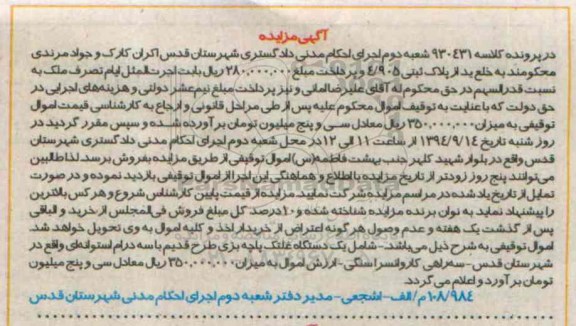 آگهی مزایده
در پرونده کلاسه ۹۳۰۴۳۱ شعبه دوم اجرای احکام مدنی دادگستری شهرستان قدس اکران کارک و جواد مرندی
محکومند به خلع ید از پلاک ثبتی ۴/۹۰۵ و پرداخت مبلغ ۲۸۰,۰۰۰,۰۰۰ ریال بابت اجرت المثل ایام تصرف ملک به
نسبت قدرالسهم در حق محکوم له آقای علیرضا امانی و نیز پرداخت مبلغ نیم عشر دولتی و هزینه های اجرایی در
حق دولت که با عنایت به توقیف اموال محکوم علیه پس از طی مراحل قانونی و ارجاع به کارشناسی قیمت اموال
توقیفی به میزان ۳۵۰,۰۰۰,۰۰۰ ریال معادل سی و پنج میلیون تومان بر آورده شده و سپس مقرر گردید در
روز شنبه تاریخ ۱۳۹۴/۹/۱۴ از ساعت ۱۱ الی ۱۲ در محل شعبه دوم اجرای احکام مدنی دادگستری شهرستان
قدس واقع در بلوار شهید کلهر جنب بهشت فاطمه(س) اموال توقیفی از طریق مزایده بفروش برسد. لذا طالبین
می توانند پنج روز زودتر از تاریخ مزایده با اطلاع و هماهنگی این اجرا از اموال توقیفی بازدید نموده و در صورت
تمایل از تاریخ یاد شده در مراسم مزایده شرکت نمایید. مزایده از قیمت پایین کارشناس شروع و هر کس بالاترین
را پیشنهاد نماید به توان برنده مزایده شناخته شده و ۱۰ درصد کل مبلغ فروش فی المجلس از خرید و الباقی
پس از گذشت یک هفته و عدم وصول هر گونه اعتراض از خریدار اخذ و کلیه اموال به وی تحویل خواهد شد.
اموال توقیفی به شرح ذیل می باشد- شامل یک دستگاه غلتک پاچه بزی طرح قدیم با سه درام استوانه ای واقع در
شهرستان قدس-سه راهی کاروانسرا سنگی-ارزش اموال به میزان ۳۵۰,۰۰۰,۰۰۰ ریال معادل سی و پنج میلیون
تومان بر آورد و اعلام می گردد.
۱۰۸/۹۸۴ م/الف-اشجعی-مدیر دفتر شعبه دوم اجرای احکام مدنی شهرستان قدس